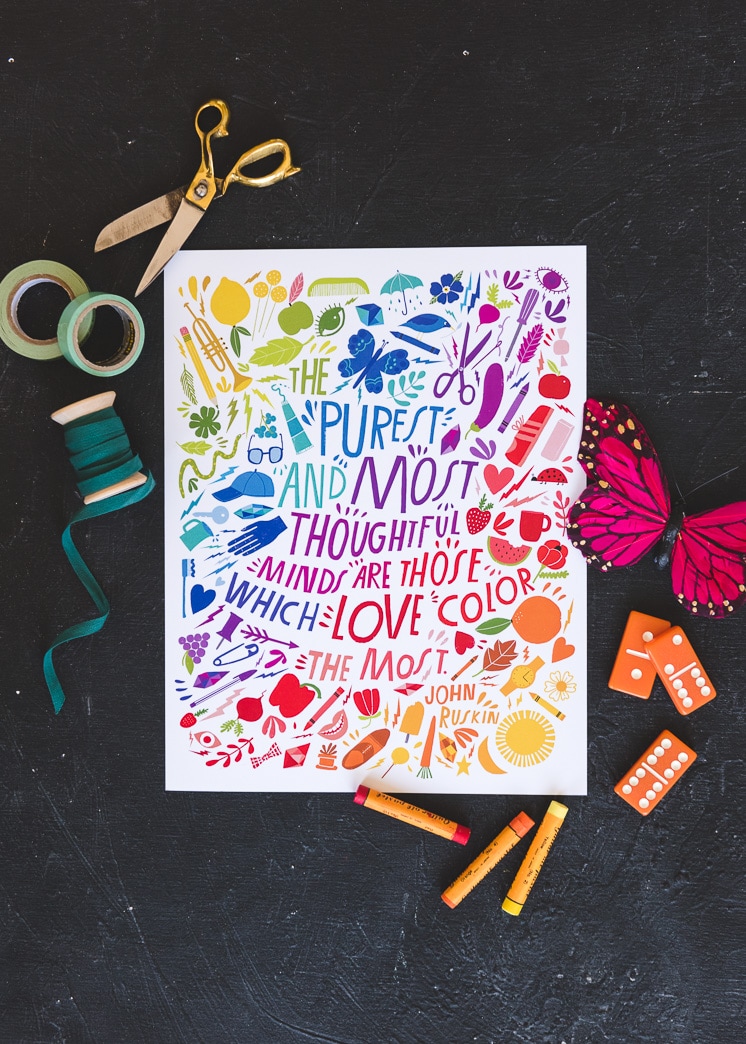 THE
PUREST
AND MOST
THOUGHTFUL
MINDS ARE THOSE
WHICH LOVE COLOR
THE MOST.
JOHN
RUSKIN